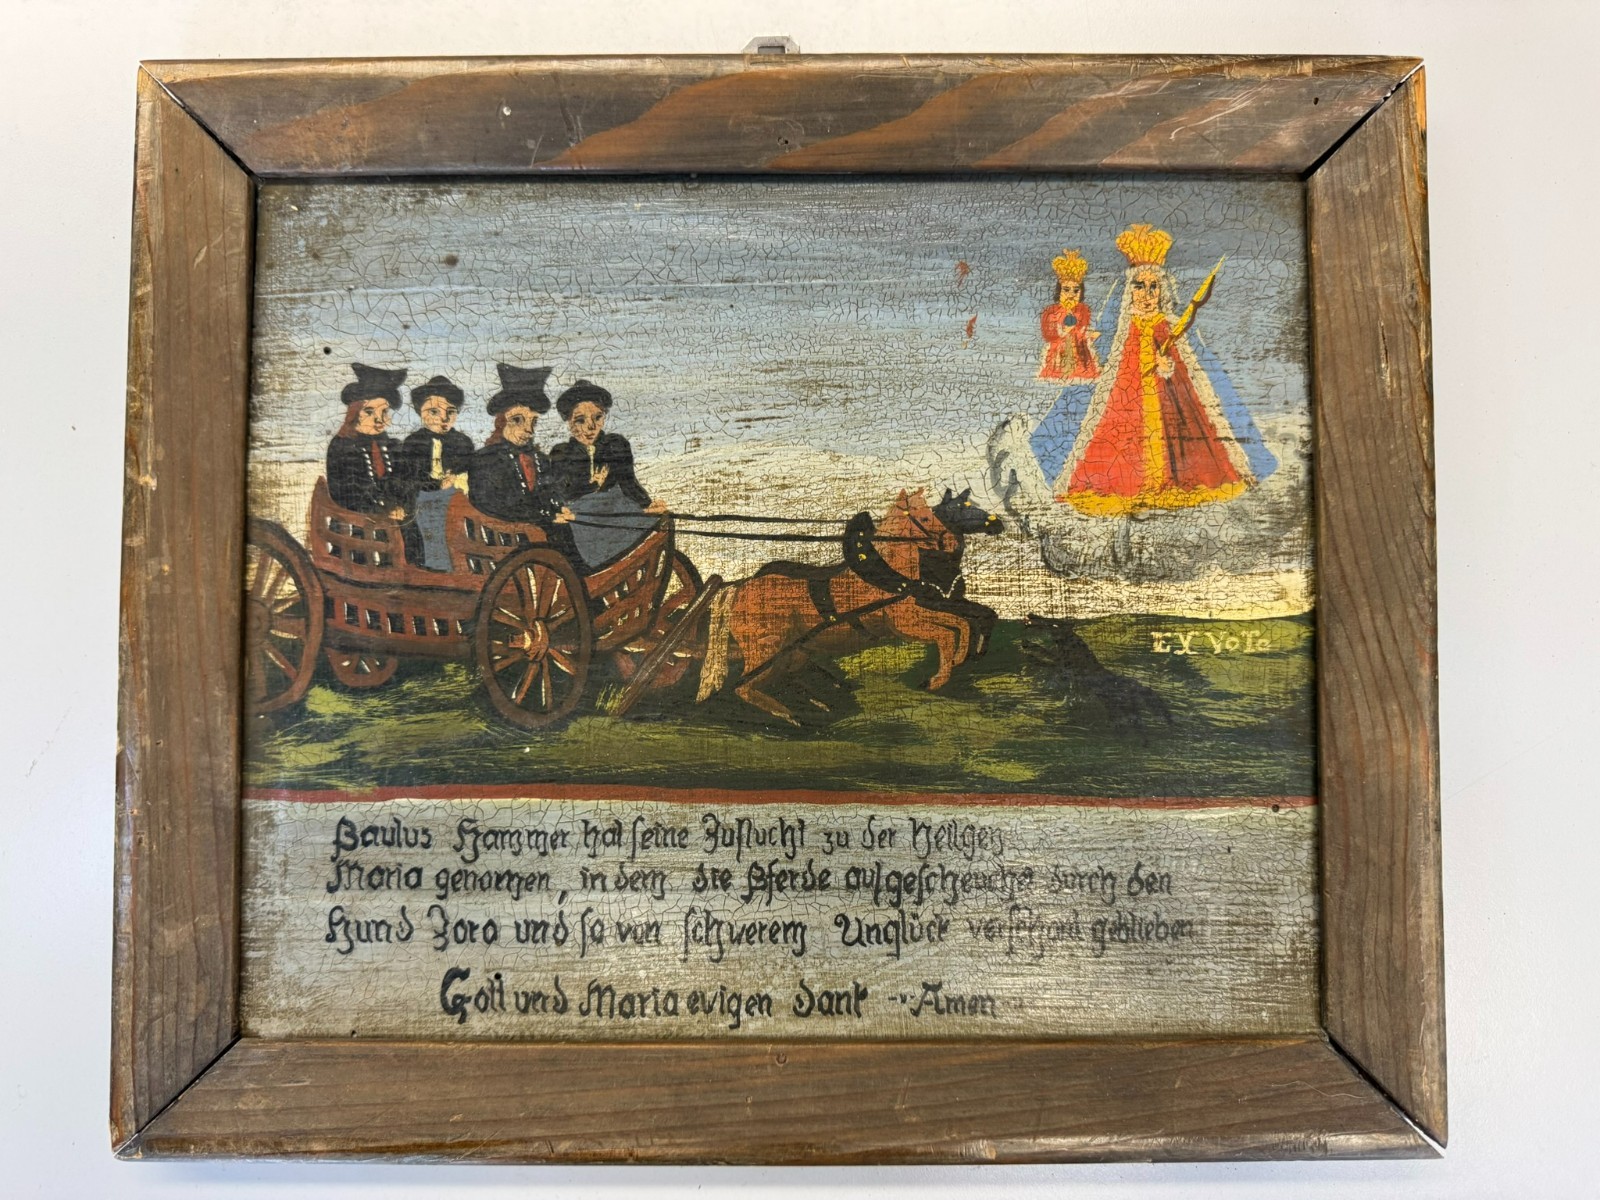 EX VoTo
Paulus Hammer, hat seine Zuflucht zu der Heilgen
Maria genomen, in dem die Pferde aufgescheuchet durch den
Hund Zoro und so von schwerem Unglück verschont geblieben
Gott und Maria ewigen dank - Amen